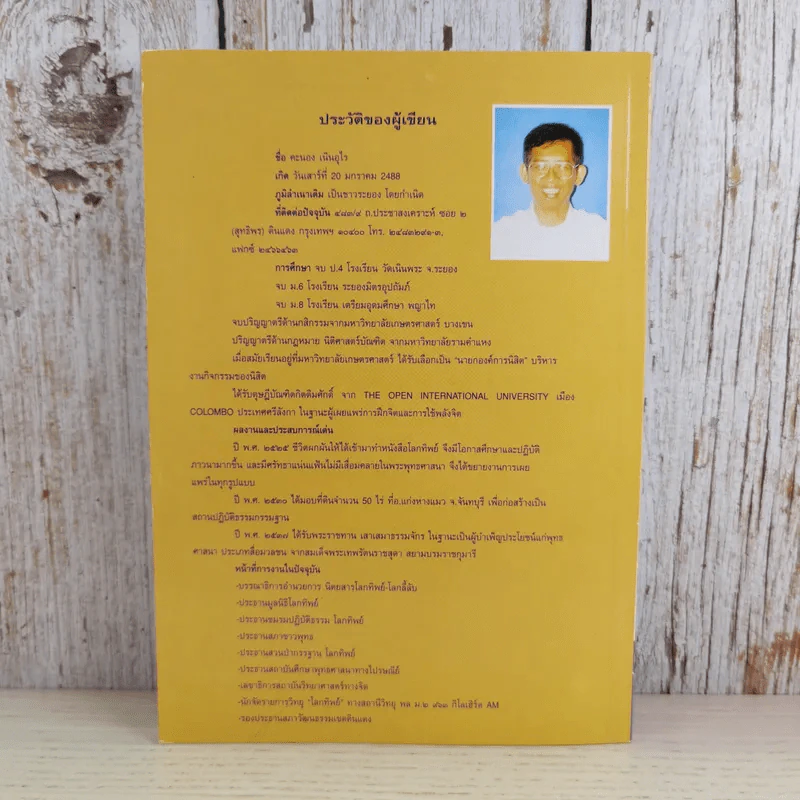 ประวัติของผู้เขียน
ชื่อ คะนอง เนินอุไร
เกิด วันเสาร์ที่ 20 มกราคม 2488
ภูมิลำเนาเดิม เป็นชาวระยอง โดยกำเนิด
ที่ติดต่อปัจจุบัน ๔๘๓/๙ ถ.ประชาสงเคราะห์ ซอย ๒
(สุทธิพร) ดินแดง กรุงเทพฯ ๑๐๔๐๐ โทร. ๒๔๘๓๒๙๑-๓,
แฟกซ์ ๒๔๖๖๔๖๓
การศึกษา จบ ป.4 โรงเรียน วัดเนินพระ จ.ระยอง
จบ ม.6 โรงเรียน ระยองมิตรอุปถัมภ์
จบ ม.8 โรงเรียน เตรียมอุดมศึกษา พญาไท
จบปริญญาตรีด้านกสิกรรมจากมหาวิทยาลัยเกษตรศาสตร์ บางเขน
ปริญญาตรีด้านกฎหมาย นิติศาสตร์บัณฑิต จากมหาวิทยาลัยรามคำแหง
เมื่อสมัยเรียนอยู่ที่มหาวิทยาลัยเกษตรศาสตร์ ได้รับเลือกเป็น "นายกองค์การนิสิต" บริหาร
งานกิจกรรมของนิสิต
ได้รับดุษฎีบัณฑิตกิตติมศักดิ์ จาก THE OPEN INTERNATIONAL UNIVERSITY เมือง
COLOMBO ประเทศศรีลังกา ในฐานะผู้เผยแพร่การฝึกจิตและการใช้พลังจิต
ผลงานและประสบการณ์เด่น
ปี พ.ศ. ๒๕๒๕ ชีวิตผกผันให้ได้เข้ามาทำหนังสือโลกทิพย์ จึงมีโอกาสศึกษาและปฏิบัติ
ภาวนามากขึ้น และมีศรัทธาแน่นแฟ้นไม่มีเสื่อมคลายในพระพุทธศาสนา จึงได้ขยายงานการเผย
แพร่ในทุกรูปแบบ
ปี พ.ศ. ๒๕๓๐ ได้มอบที่ดินจำนวน 50 ไร่ ที่อ.แก่งหางแมว จ.จันทบุรี เพื่อก่อสร้างเป็น
สถานปฏิบัติธรรมกรรมฐาน
ปี พ.ศ. ๒๕๓๗ ได้รับพระราชทาน เสาเสมาธรรมจักร ในฐานะเป็นผู้บำเพ็ญประโยชน์แก่พุทธ
ศาสนา ประเภทสื่อมวลชน จากสมเด็จพระเทพรัตนราชสุดา สยามบรมราชกุมารี
หน้าที่การงานในปัจจุบัน
-บรรณาธิการอำนวยการ นิตยสารโลกทิพย์-โลกลี้ลับ
-ประธานมูลนิธิโลกทิพย์
-ประธานชมรมปฏิบัติธรรม โลกทิพย์
-ประธานสภาชาวพุทธ
-ประธานสวนป่ากรรฐาน โลกทิพย์
-ประธานสถาบันศึกษาพุทธศาสนาทางไปรษณีย์
-เลขาธิการสถาบันวิทยาศาสตร์ทางจิต
-นักจัดรายการวิทยุ "โลกทิพย์" ทางสถานีวิทยุ พล ม.๒ ๙๖๓ กิโลเฮิร์ต AM
-รองประธานสภาวัฒนธรรมเขตดินแดง